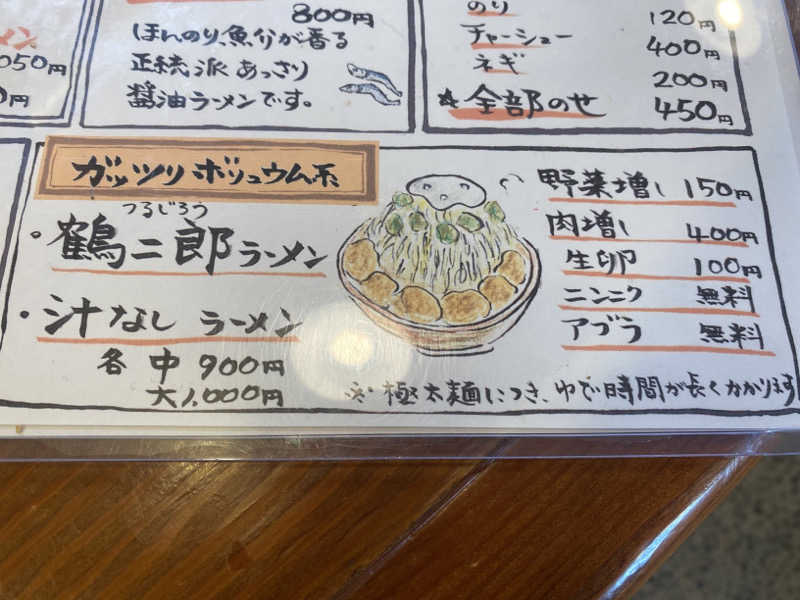 メン
050円
0円
800円
ほんのり、魚介が香る
正統派 あっさり
醤油ラーメンです。
のり 120円
チャーシュー 400円
ネギ 200円
☆全部のせ 450円
ガッツリ ボリュウム系
つるじろう
・鶴二郎ラーメン
・汁なし ラーメン
各 中 900円
大 1,000円
野菜増し 150円
肉増し 400円
生卵 100円
ニンニク 無料
アブラ 無料
※極太麺につき、ゆで時間が長くかかります